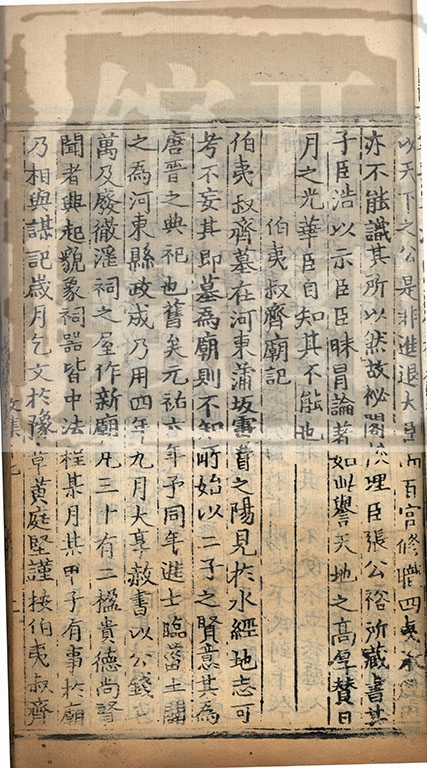 以天下之公是非進退大臣而百官修職四夷承
亦不能識其所以然故祕閣校理臣張公裕所藏書其
子臣浩以示臣臣昧冒論著如此譽天地之高厚賛日
月之光華臣自知其不能也
伯夷叔齊廟記
伯夷叔齊墓在河東蒲坂雷首之陽見於水經地志可
考不妄其即墓為廟則不知所始以二子之賢意其為
唐晉之典祀也舊矣元祐六年予同年進士臨菑王闢
之為河東縣政成乃用四年九月大享赦書以公錢
萬及廢徹淫祠之屋作新廟凡三十有二楹貴德尚賢
聞者興起貌象祠器皆中法程某月某甲子有事於廟
乃相與謀記歲月乞文於豫章黃庭堅謹按伯夷叔齊
文集